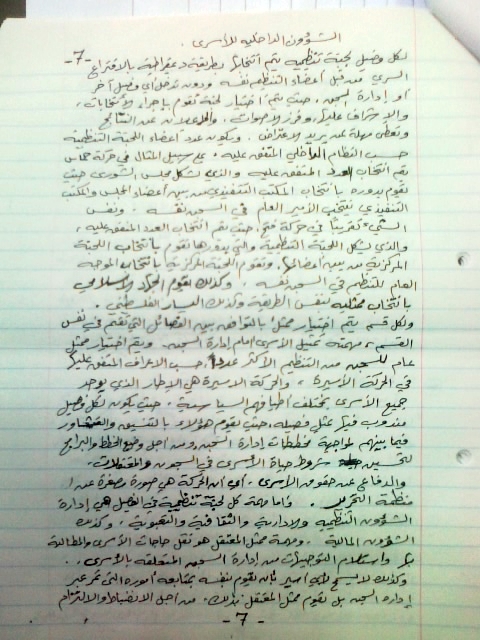 الشؤون الداخلية للأسرى .
-7-
لكل فصيل لجنة تنظيمية يتم انتخابها بطريقة ديمقراطية بالاقتراع
السري من قبل أعضاء التنظيم نفسه ودون تدخل أي فصيل آخر
أو إدارة السجن ، حيث يتم اختيار لجنة تقوم بإجراء الانتخابات ،
والإشراف عليها ، وفرز الأصوات ، والإعلان عن النتائج
وتعطى مهلة لمن يريد الاعتراض . ويكون عدد أعضاء اللجنة التنظيمية
حسب النظام الداخلي المتفق عليه ، على سبيل المثال في حركة حماس
يتم انتخاب العدد المتفق عليه والذي يشكل مجلس الشورى حيث
يقوم بدوره بانتخاب المكتب التنفيذي من بين أعضاء المجلس والمكتب
التنفيذي ينتخب الأمير العام في السجن نفسه . ونفس
الشيء تقريباً في حركة فتح ، حيث يتم انتخاب العدد المتفق عليه ،
والذي يشكل اللجنة التنظيمية والتي بدورها تقوم بانتخاب اللجنة
المركزية من بين أعضائها . وتقوم اللجنة المركزية بانتخاب الموجه
العام للتنظيم في السجن نفسه . وكذلك يقوم الجهاد الإسلامي
بانتخاب ممثليه بنفس الطريقة وكذلك اليسار الفلسطيني .
ولكل قسم يتم اختيار ممثل بالتوافق بين الفصائل التي تقيم في نفس
القسم ، مهمته تمثيل الأسرى أمام إدارة السجن . ويتم اختيار ممثل
عام للسجن من التنظيم الأكثر عدداً ، حسب الأعراف المتفق عليها
في الحركة الأسيرة ، والحركة الأسيرة هي الإطار الذي يوحد
جميع الأسرى بمختلف أطيافهم السياسية ، حيث يكون لكل فصيل
مندوب فيها يمثل فصيله ، حيث يقوم هؤلاء بالتنسيق والتشاور
فيما بينهم لمواجهة مخططات إدارة السجن ومن أجل وضع الخطط والبرامج
لتحسين شروط حياة الأسرى في السجون والمعتقلات .
والدفاع عن حقوق الأسرى . أي أن الحركة هي صورة مصغرة عن
منظمة التحرير . وأما مهمة كل لجنة تنظيمية في الفصيل هي إدارة
الشؤون التنظيمية والإدارية والثقافية والتعبوية ، وكذلك
الشؤون المالية . ومهمة ممثل المعتقل هو نقل حاجات الأسرى والمطالبة
بها واستلام التوجيهات من إدارة السجن المتعلقة بالأسرى . .
وكذلك لا يسمح لأي أسير بأن يقوم بنفسه بمتابعة أموره التي تمر عبر
إدارة السجن بل يقوم ممثل المعتقل بذلك ، من أجل الانضباط والالتزام
- 7 -